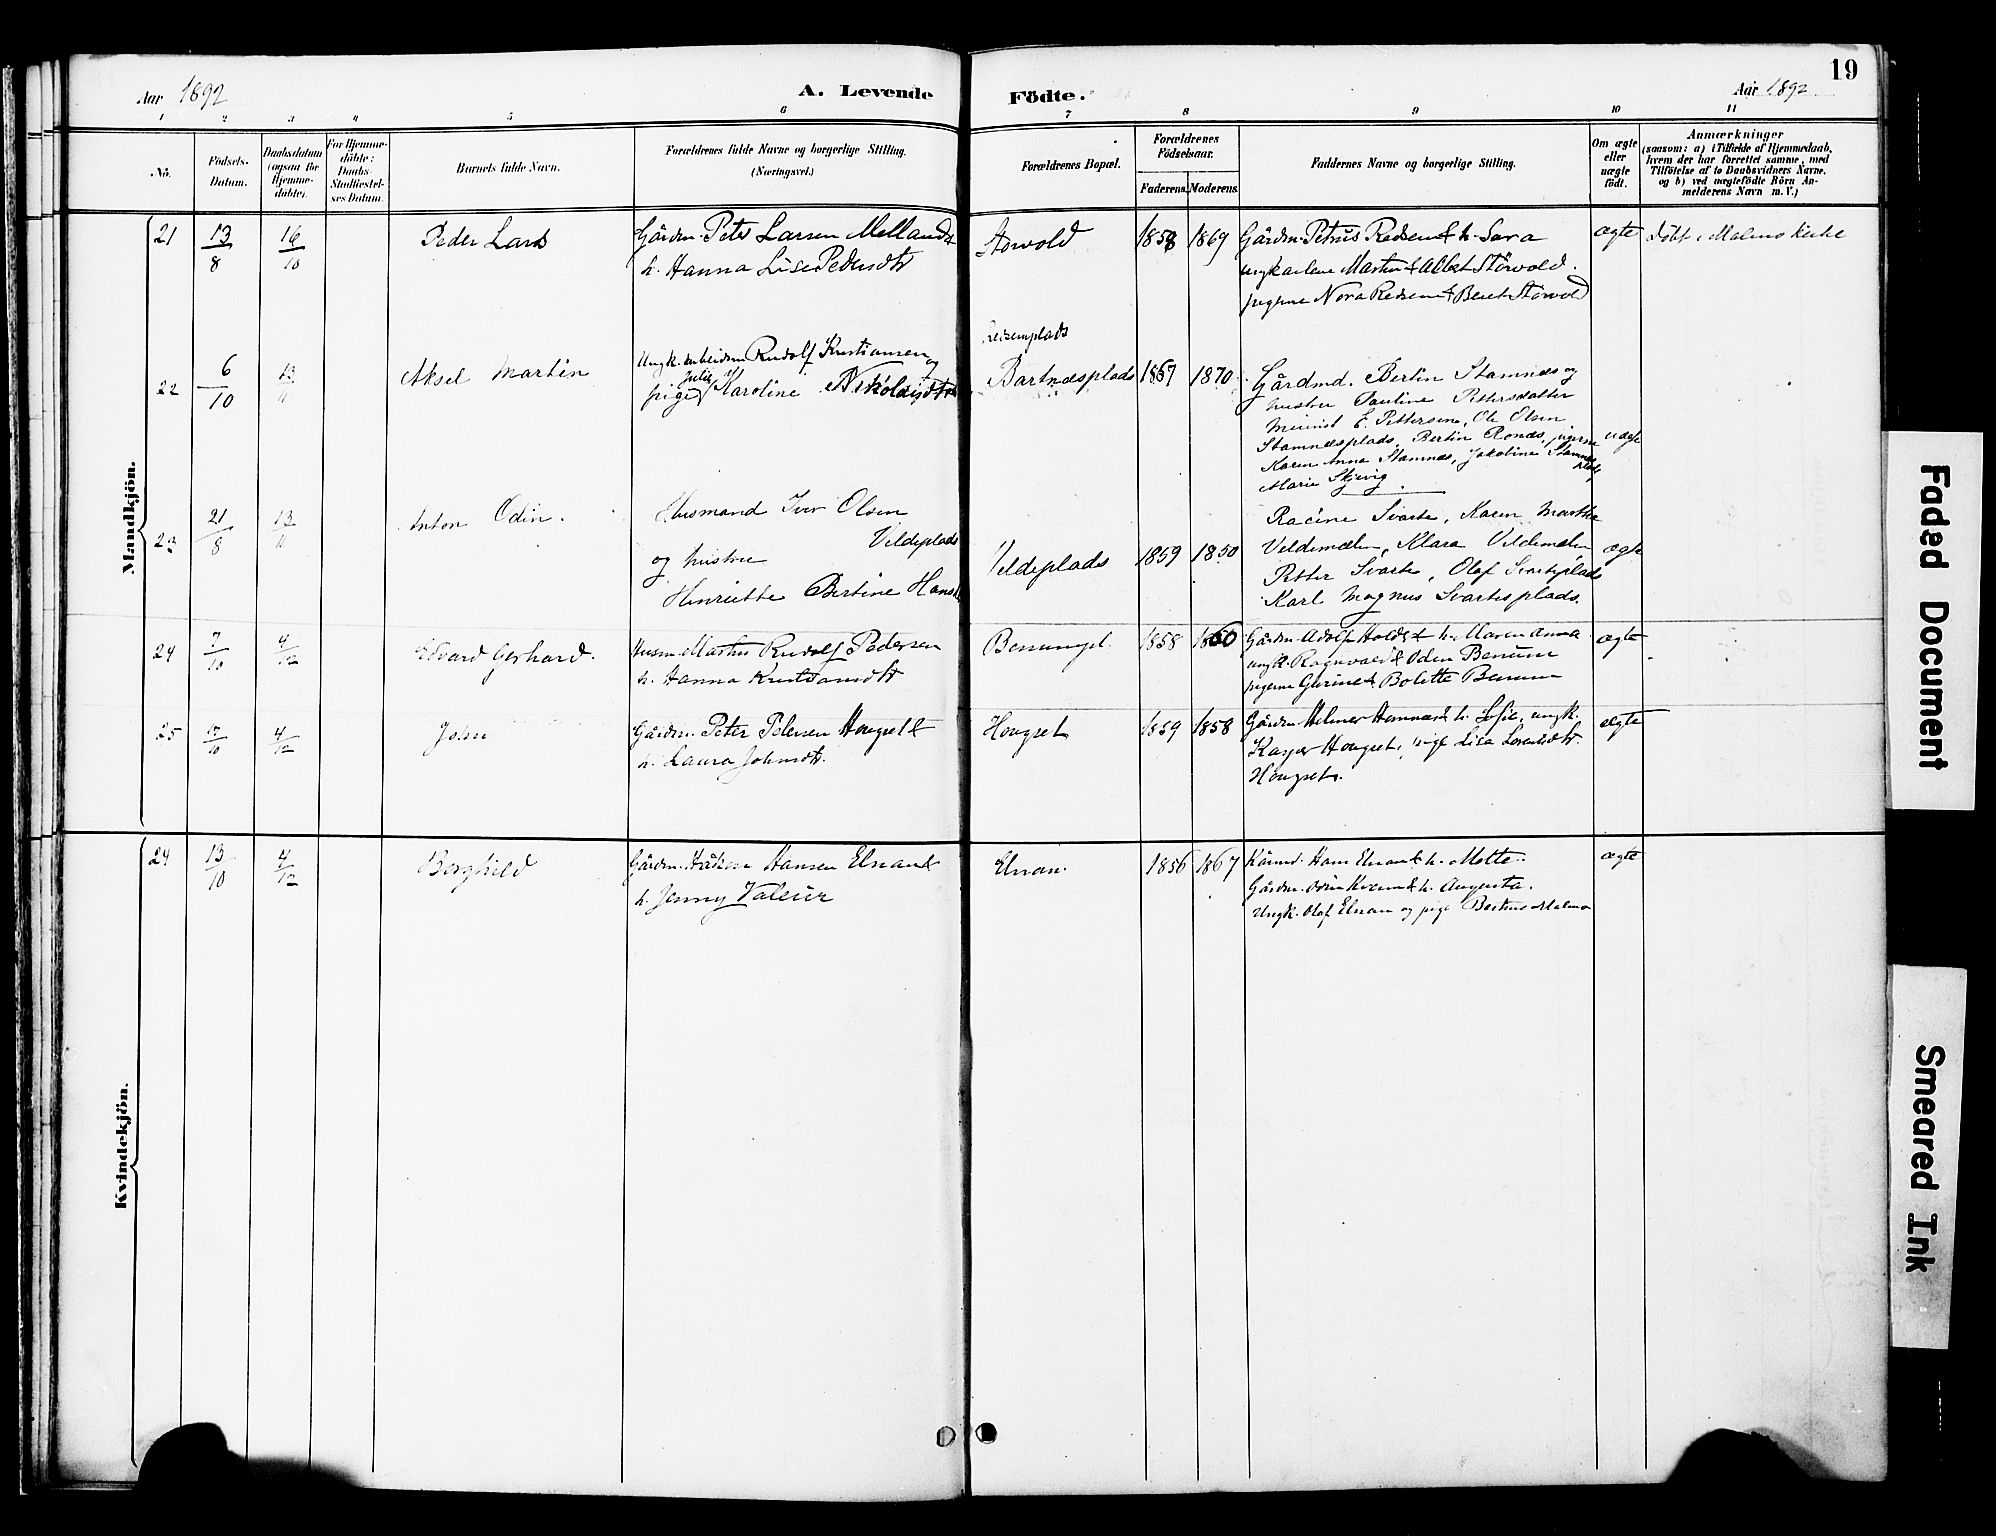 19
Aar 1892
A. Levende
Födte.
Aar 1892
1 2 3 4 5 6 7 8 9 10 11
No.
Födsels-
Datum.
Daabsdatum
(ogsaa for
Hjemme-
döbte).
For Hjemme-
döbte:
Daabs-
Stadfæstel-
ses Datum.
Barnets fulde Navn.
Forældrenes fulde Navne og borgerlige Stilling.
(Næringsvei.)
Forældrenes Bopæl.
Forældrenes
Födselsaar.
Faderens. Moderens.
Faddernes Navne og borgerlige Stilling.
Om ægte
eller
uægte
födt.
Anmærkninger
(saasom: a) i Tilfælde af Hjemmedaab,
hvem der har forrettet samme, med
Tilföielse af to Daabsvidners Navne,
og b) ved uægtefödte Börn An-
melderens Navn m. V.)
Mandkjön.
21
13/8
16/10
Peder Lars
Gårdm. Peter Larsen Melland &
h. Hanna Lise Pedersdtr
Storvold
1858 1869
Gårdm. Petrus Redsem & h. Sara
ungkarlene Martin & Albet Storvold.
pigerne Nora Redsem & Beret Storvold
ægte
døbt i Malmo Kirke
22
6/10
13/11
Aksel Martin
Ungk. arbeidsm Rudolf Kristiansen og
pige Julie Karoline Nikolaisdtr
Bartnæsplads
1867 1870
Gårdmd. Bertin Stamnæs og
hustru Pauline Pettersdatter
E. Pettersen, Ole Olsen
Stamnæsplads, Bertin Ronæs, pigerne
Karen Anna Stamnæs, Jakoline Stamnæs
plads,
Marie Skjevig.
uægte
23
21/8
13/11
Anton Odin.
Husmand Iver Olsen
Veldeplads
og hustru
Henriette Bertine Hansd
Veldeplads
1859 1850
Racine Svarte, Karen Marthe
Veldemælen, Klara Veldemælen
Petter Svarte, Olaf Svarteplads
Karl Magnus Svartesplads.
ægte
24
7/10
4/12
Edvard Gerhard.
Husm. Martin Rudolf Pedersen
h. Hanna Kristiansdtr
Benumpl.
1858 1860
Gårdm. Adolf Holdes & h. Maren Anna
ungk. Ragnvald & Oden Benum
pigerne Gurine & Bolette Benum
ægte
25
17/10
4/12
John
Gårdm. Peter Petersen Hougset &
h. Laura Johnsdtr.
Hougset
1859 1858
Gårdm. Helmer Hemnæs & h. Sofie, ungk.
Kasper Hougset, pige Lisa Lorentsdtr.
Hougset.
ægte
Kvindekjön.
24
13/10
4/12
Borghild
Gårdm. Håkon Hansen Elnan &
h. Jenny Valeur
Elnan.
1856 1867
Kårmd. Hans Elnan & h. Mette.
Gårdm. Odin Kvam & h. Augusta.
Ungk. Olaf Elnan og pige Bertine Malmo
ægte
Faded Document
Smeared Ink